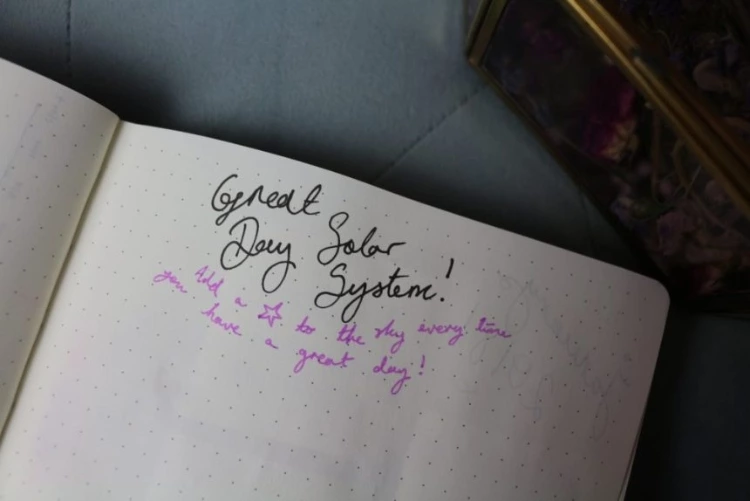 Great
Day Solar
System!
Add a ☆ to the sky every time
you have a great day!